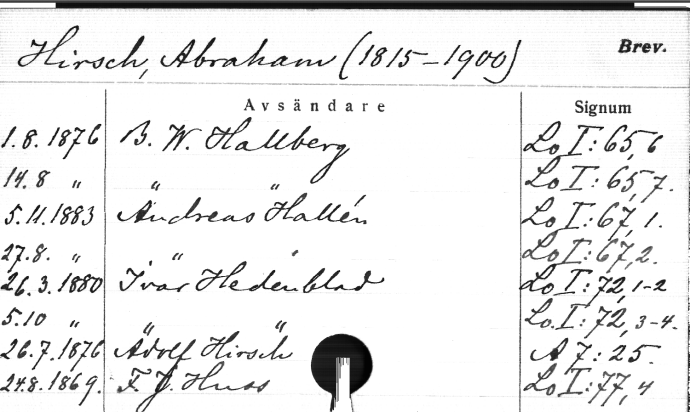 Hirsch, Abraham (1815-1900) Brev.
Avsändare Signum
1.8.1876 B. W. Hallberg Lo I: 65, 6
14.8 " " " Lo I: 65, 7.
5.11.1883 Andreas Hallén Lo I: 67, 1.
27.8. " " " Lo I: 67, 2.
26.3.1880 Ivar Hedenblad Lo I: 72, 1-2
5.10 " " " Lo. I: 72, 3-4.
26.7.1876 Adolf Hirsch A 7: 25.
24.8.1869. F. J. Huss Lo I: 77, 4